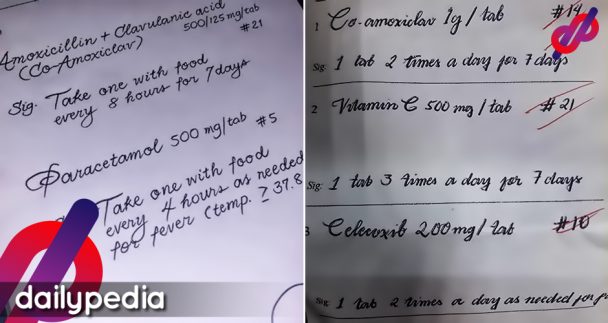 Amoxicillin + Clavulanic acid
(Co-Amoxiclav) 500/125 mg/tab
#21
Sig. Take one with food
every 8 hours for 7 days
Paracetamol 500 mg/tab #5
Take one with food
every 4 hours as needed
for fever (temp. ≥ 37.8
dailypedia
1 Co-amoxiclav 1g / tab #14
Sig: 1 tab 2 times a day for 7 days
2 Vitamin C 500 mg / tab #21
Sig: 1 tab 3 times a day for 7 days
3 Celecoxib 200mg / tab #10
Sig: 1 tab 2 times a day as needed for